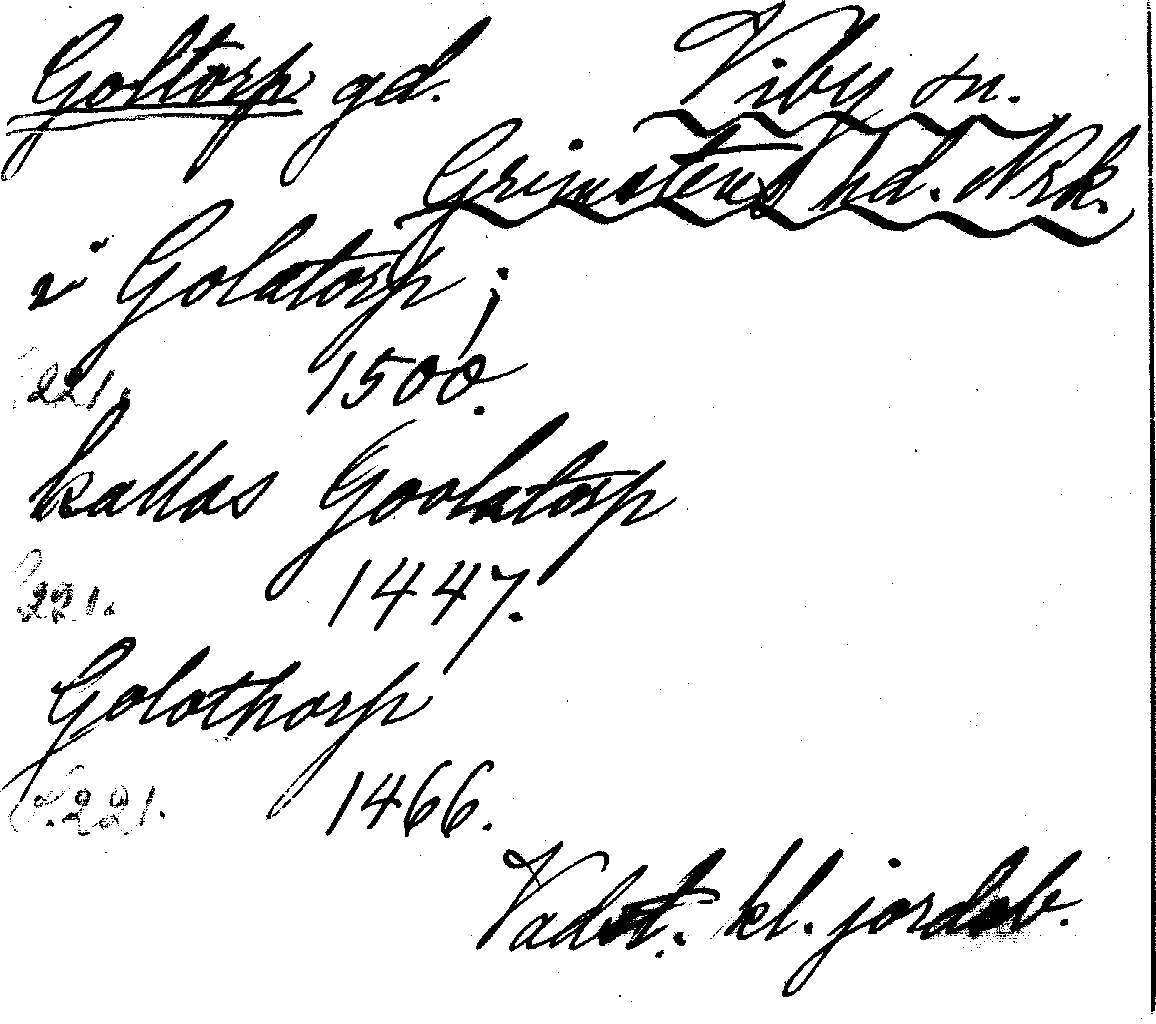 Goltorp gd. Viby sn.
Grimstens hd. Nrk.
i Golatorp;
221. 1500.
kallas Goolatorp
221. 1447.
Golothorp
S. 221. 1466.
Vadst. kl. jordeb.